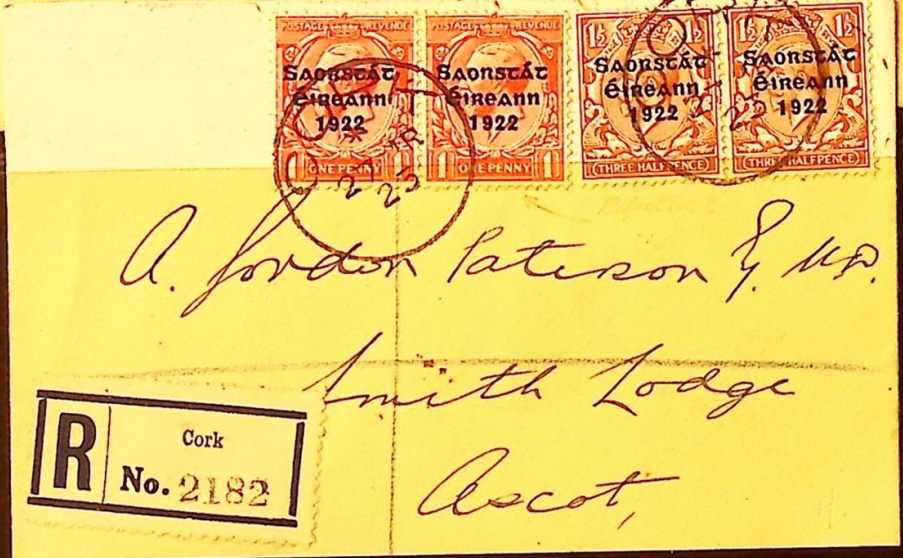 POSTAGE REVENUE
Saorstát
Éireann
1922
1 ONE PENNY 1
POSTAGE REVENUE
Saorstát
Éireann
1922
1 ONE PENNY 1
1½ 1½
Saorstát
Éireann
1922
(THREE HALFPENCE)
1½ 1½
Saorstát
Éireann
1922
(THREE HALFPENCE)
23
A. Gordon Paterson Esq. M.D.
Smith Lodge
Ascot,
R
Cork
No. 2182